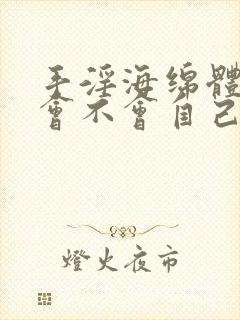 手淫海绵體
會不會自己
燈火夜市